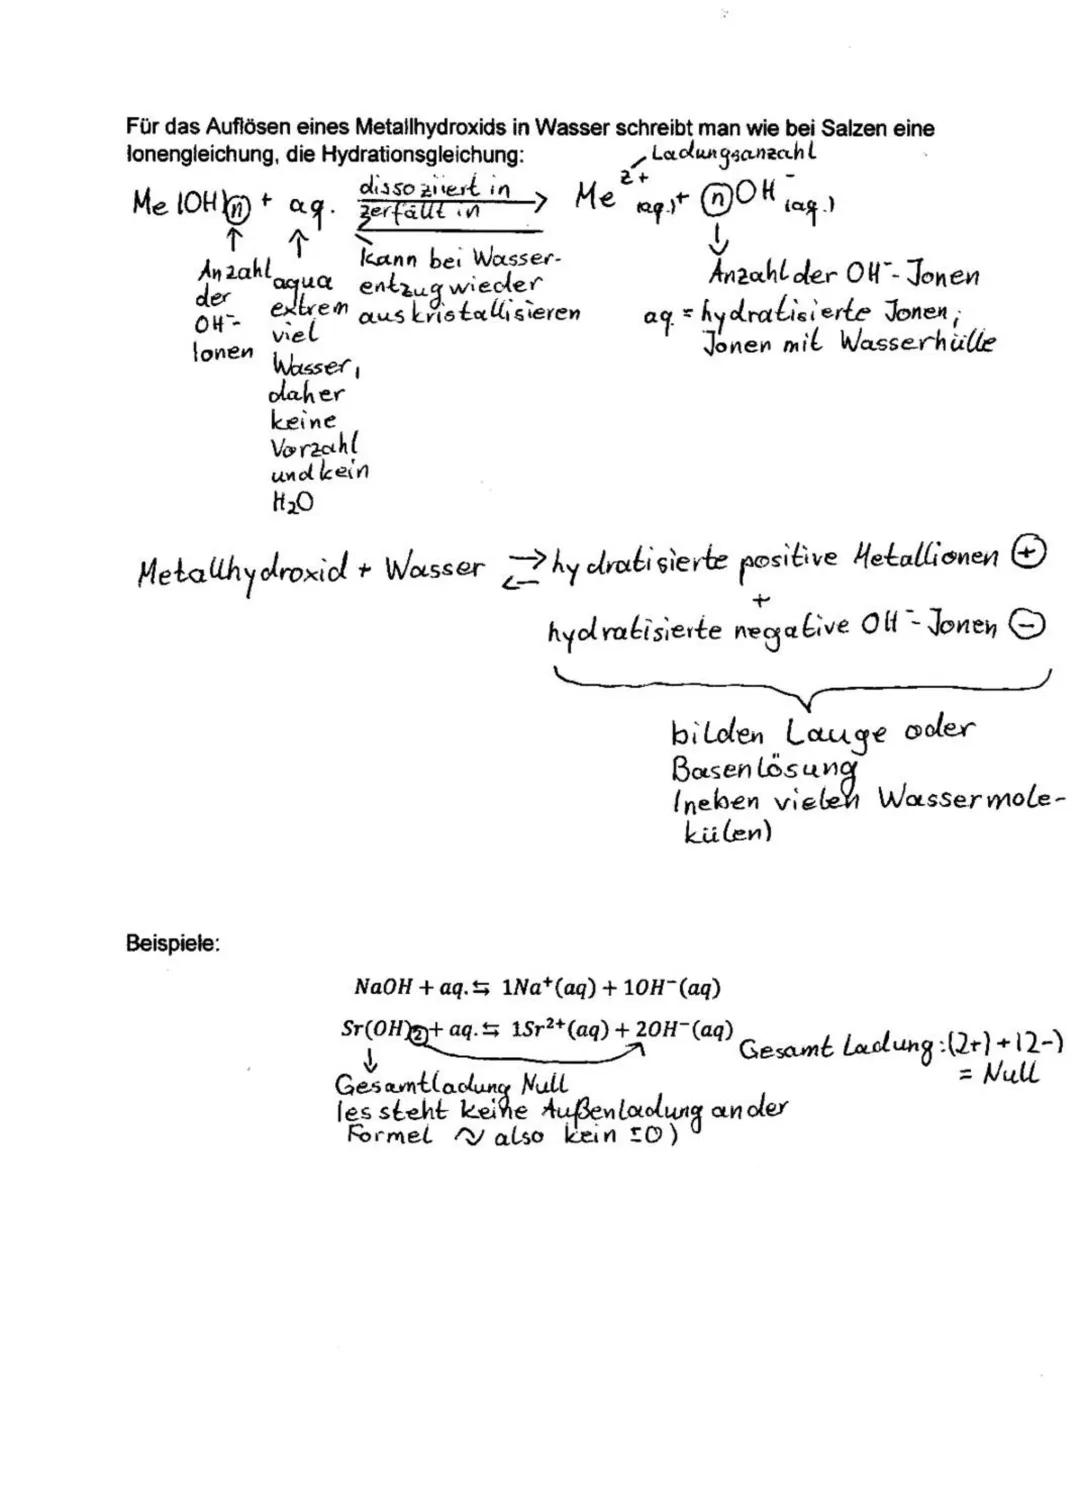 Für das Auflösen eines Metallhydroxids in Wasser schreibt man wie bei Salzen eine
Ionengleichung, die Hydrationsgleichung:
Ladungsanzahl
Me (OH)n + aq. dissoziiert in / zerfällt in → Me z+ (aq.) + n OH⁻ (aq.)
Anzahl der OH⁻-Ionen
aqua extrem viel Wasser, daher keine Vorzahl und kein H₂O
kann bei Wasser-
entzug wieder
auskristallisieren
Anzahl der OH⁻-Jonen
aq. = hydratisierte Jonen;
Jonen mit Wasserhülle
Metallhydroxid + Wasser ⇄ hydratisierte positive Metallionen ⊕
+
hydratisierte negative OH⁻-Jonen ⊖
bilden Lauge oder
Basenlösung
(neben vielen Wassermole-
külen)
Beispiele:
NaOH + aq. ⇆ 1Na⁺(aq) + 1OH⁻(aq)
Sr(OH)2 + aq. ⇆ 1Sr²⁺(aq) + 2OH⁻(aq)
Gesamt Ladung: (2+) + (2-)
= Null
Gesamtladung Null
(es steht keine Außenladung an der
Formel also kein)